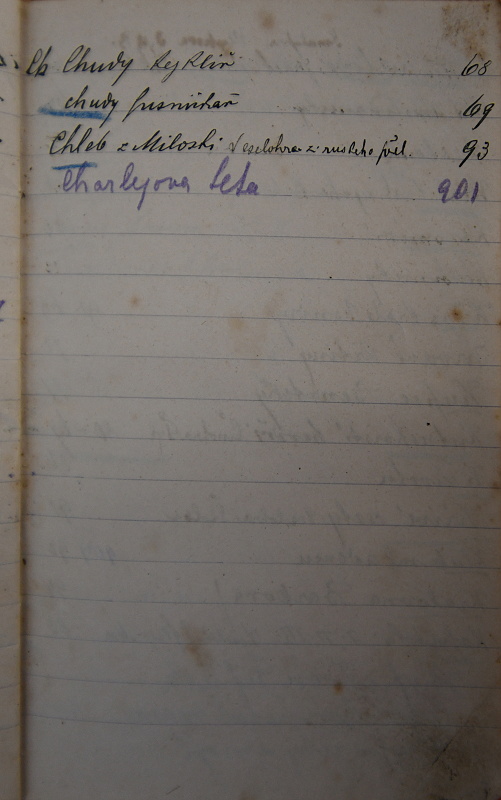 Ch Chudý kejklíř 68
chudý písničkář 69
Chléb z Miloski Veselohra z ruského přel. 93
Charleyova teta 901